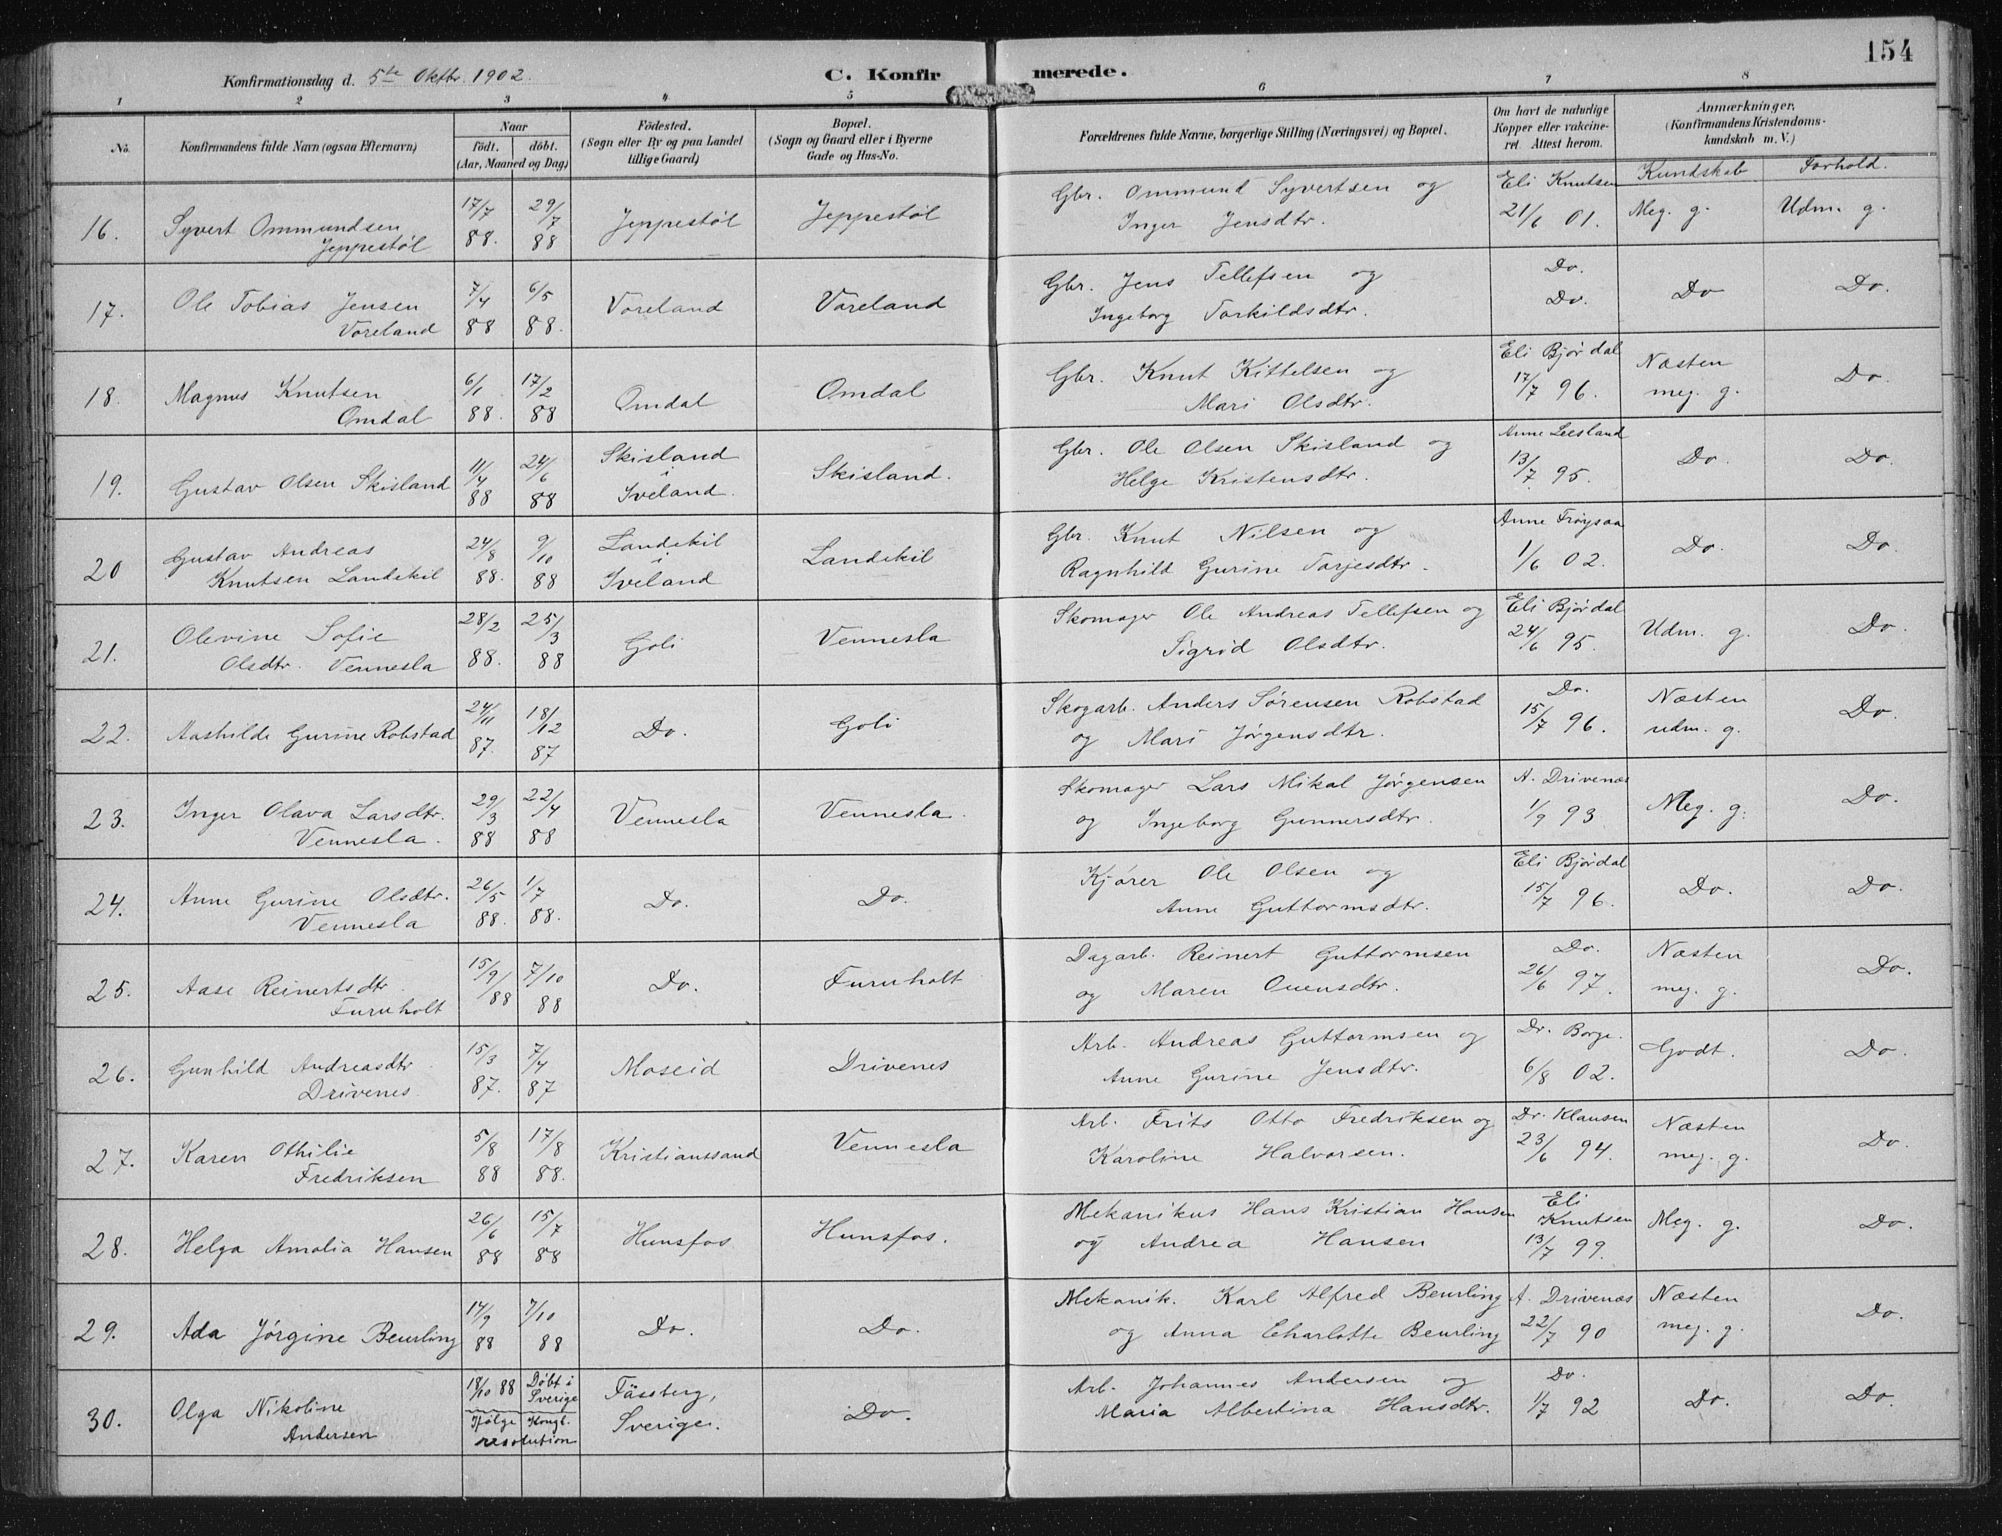 154
Konfirmationsdag d. 5te Oktbr. 1902.
C. Konfirmerede.
1 2 3 4 5 6 7 8
No.
Konfirmandens fulde Navn (ogsaa Efternavn)
Naar
födt. döbt.
(Aar, Maaned og Dag)
Födested.
(Sogn eller By og paa Landet
tillige Gaard)
Bopæl.
(Sogn og Gaard eller i Byerne
Gade og Hus-No.
Forældrenes fulde Navne, borgerlige Stilling (Næringsvei) og Bopæl.
Om havt de naturlige
Kopper eller vakcine-
ret. Attest herom.
Anmærkninger.
(Konfirmandens Kristendoms-
kundskab m. V.)
Kundskab Forhold.
16. Syvert Ommundsen
Jeppestøl
17/7 88. 29/7 88
Jeppestøl
Jeppestøl
Gbr. Ommund Syvertsen og
Inger Jensdtr.
Eli Knutsen
21/6 01.
Meg. g.
Udm. g.
17. Ole Tobias Jensen
Voreland
7/4 88 6/5 88.
Voreland
Voreland
Gbr. Jens Tellefsen og
Ingeborg Torkildsdtr.
Do.
Do.
Do
Do.
18. Magnus Knutsen
Omdal
6/1 88. 17/2 88
Omdal
Omdal
Gbr. Knut Kittelsen og
Mari Olsdtr.
Eli Bjørdal
17/7 96.
Næsten
meg. g.
Do.
19. Gustav Olsen Skisland
11/4 88 24/6 88
Skisland
i
Iveland.
Skisland.
Gbr. Ole Olsen Skisland og
Helge Kristensdtr.
Anne Leesland
13/7 95.
Do.
Do.
20 Gustav Andreas
Knutsen Landekil
24/8 88. 9/10 88
Landekil
i
Iveland
Landekil
Gbr. Knut Nilsen og
Ragnhild Gurine Tarjesdtr.
Anne Frøysaa
1/6 02.
Do.
Do.
21. Olevine Sofie
Olsdtr. Vennesla
28/2 88. 25/3 88
Goli
Vennesla
Skomager Ole Andreas Tellefsen og
Sigrid Olsdtr.
Eli Bjørdal
24/6 95.
Udm. g.
Do.
22. Mathilde Gurine Robstad
24/11 87. 18/12 87
Do.
Goli
Skogarb. Anders Sørensen Robstad
og Mari Jørgensdtr.
Do.
15/7 96.
Næsten
udm. g.
Do.
23. Inger Olava Larsdtr.
Vennesla.
29/3 88 22/4 88
Vennesla
Vennesla.
Skomager Lars Mikal Jørgensen
og Ingeborg Gunnersdtr.
A. Drivenæs
1/9 93
Meg. g.
Do.
24. Anne Gurine Olsdtr.
Vennesla
26/5 88. 1/7 88.
Do.
Do.
Kjører Ole Olsen og
Anne Guttormsdtr.
Eli Bjørdal
15/7 96.
Do.
Do.
25. Aase Reinertsdtr.
Furuholt
15/9/88 7/10 88
Do.
Furuholt
Dagarb. Reinert Guttormsen
og Maren Ouensdtr.
Do.
26/6 97.
Næsten
meg. g.
Do.
26. Gunhild Andreasdtr.
Drivenes.
15/3 87. 7/4 87
Moseid
Drivenes
Arb. Andreas Guttormsen og
Anne Gurine Jensdtr.
Dr. Borge.
6/8 02.
Godt.
Do.
27. Karen Othilie
Fredriksen
5/8 88 17/8 88.
Kristianssand
Vennesla
Arb. Frits Otto Fredriksen og
Karoline Halvorsen.
Dr. Klausen
23/6 94.
Næsten
meg. g.
Do.
28. Helga Amalia Hansen
26/6 88 15/7 88
Hunsfos
Hunsfos.
Mekanikus Hans Kristian Hansen
og Andrea Hansen
Eli
Knutsen
13/7 99.
Meg. g.
Do.
29. Ada Jørgine Beurling
14/9 88 7/10 88
Do.
Do.
Mekanik. Karl Alfred Beurling
og Anna Charlotte Beurling
A. Drivenæs
22/7 90
Næsten
meg. g.
Do.
30. Olga Nikoline
Andersen
18/10 88 Døbt i
Sverige
Ifølge Kongl.
resolution
Fässberg,
Sverige.
Do.
Arb. Johannes Andersen og
Maria Albertina Hansdtr.
Do.
1/7 92
Do.
Do.